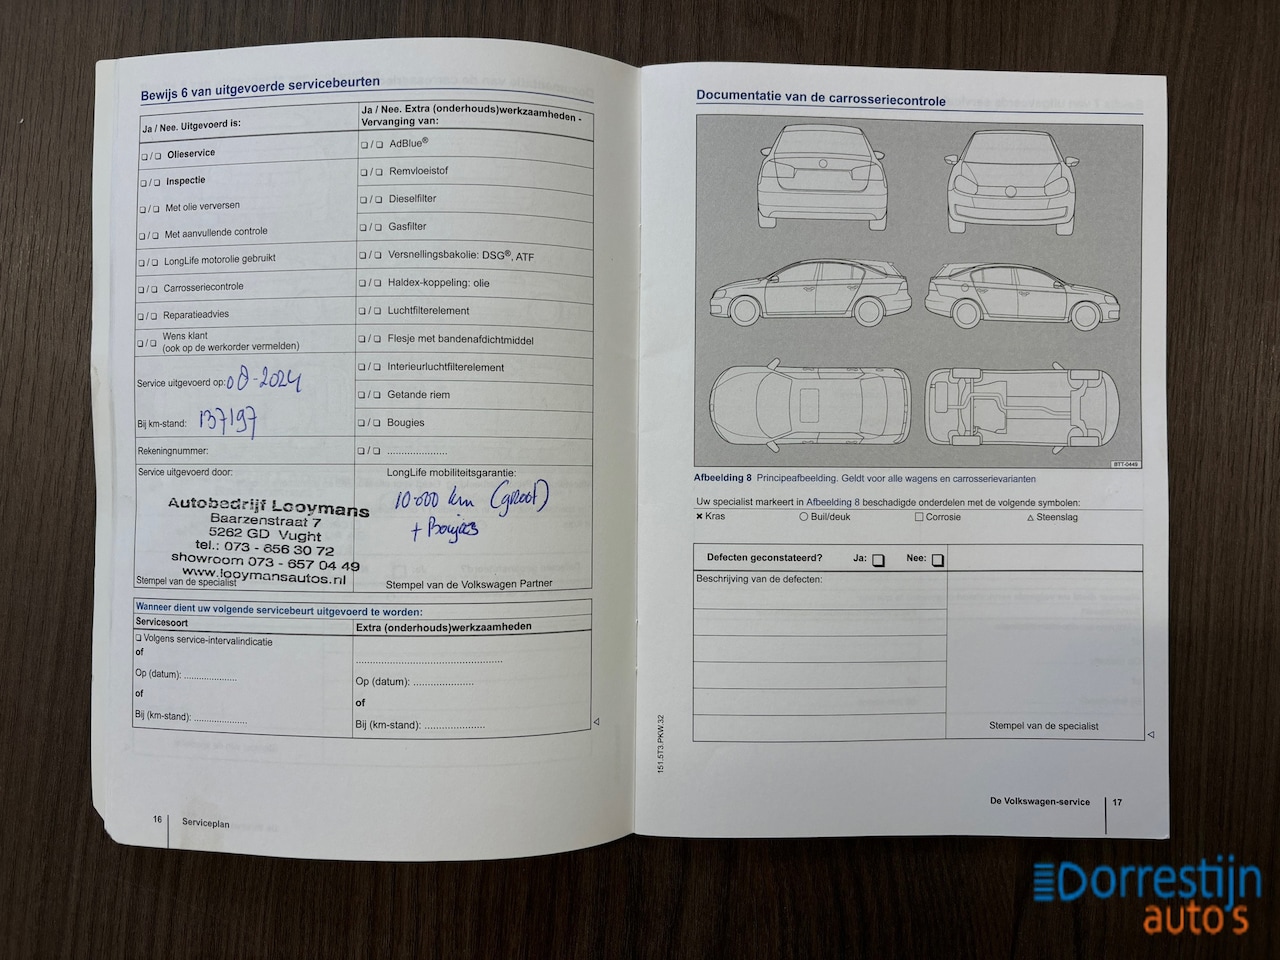 Bewijs 6 van uitgevoerde servicebeurten
Ja / Nee. Uitgevoerd is:
❑ / ❑ Olieservice
❑ / ❑ Inspectie
❑ / ❑ Met olie verversen
❑ / ❑ Met aanvullende controle
❑ / ❑ LongLife motorolie gebruikt
❑ / ❑ Carrosseriecontrole
❑ / ❑ Reparatieadvies
❑ / ❑ Wens klant
(ook op de werkorder vermelden)
Service uitgevoerd op: 08-2024
Bij km-stand: 137197
Rekeningnummer:
Service uitgevoerd door:
Autobedrijf Looymans
Baarzenstraat 7
5262 GD Vught
tel.: 073 - 656 30 72
showroom 073 - 657 04 49
www.looymansautos.nl
Stempel van de specialist
Ja / Nee. Extra (onderhouds)werkzaamheden -
Vervanging van:
❑ / ❑ AdBlue®
❑ / ❑ Remvloeistof
❑ / ❑ Dieselfilter
❑ / ❑ Gasfilter
❑ / ❑ Versnellingsbakolie: DSG®, ATF
❑ / ❑ Haldex-koppeling: olie
❑ / ❑ Luchtfilterelement
❑ / ❑ Flesje met bandenafdichtmiddel
❑ / ❑ Interieurluchtfilterelement
❑ / ❑ Getande riem
❑ / ❑ Bougies
❑ / ❑ ......................
LongLife mobiliteitsgarantie:
10.000 km (groot)
+ Boujies
Stempel van de Volkswagen Partner
Wanneer dient uw volgende servicebeurt uitgevoerd te worden:
Servicesoort
❑ Volgens service-intervalindicatie
of
Op (datum): ....................
of
Bij (km-stand): ....................
Extra (onderhouds)werkzaamheden
.....................................................
Op (datum): ......................
of
Bij (km-stand): ......................
16 Serviceplan
Documentatie van de carrosseriecontrole
BTT-0449
Afbeelding 8 Principeafbeelding. Geldt voor alle wagens en carrosserievarianten
Uw specialist markeert in Afbeelding 8 beschadigde onderdelen met de volgende symbolen:
✕ Kras ○ Buil/deuk □ Corrosie △ Steenslag
Defecten geconstateerd? Ja: ❑ Nee: ❑
Beschrijving van de defecten:
Stempel van de specialist
151.5T3.PKW.32
De Volkswagen-service 17
Dorrestijn
auto's